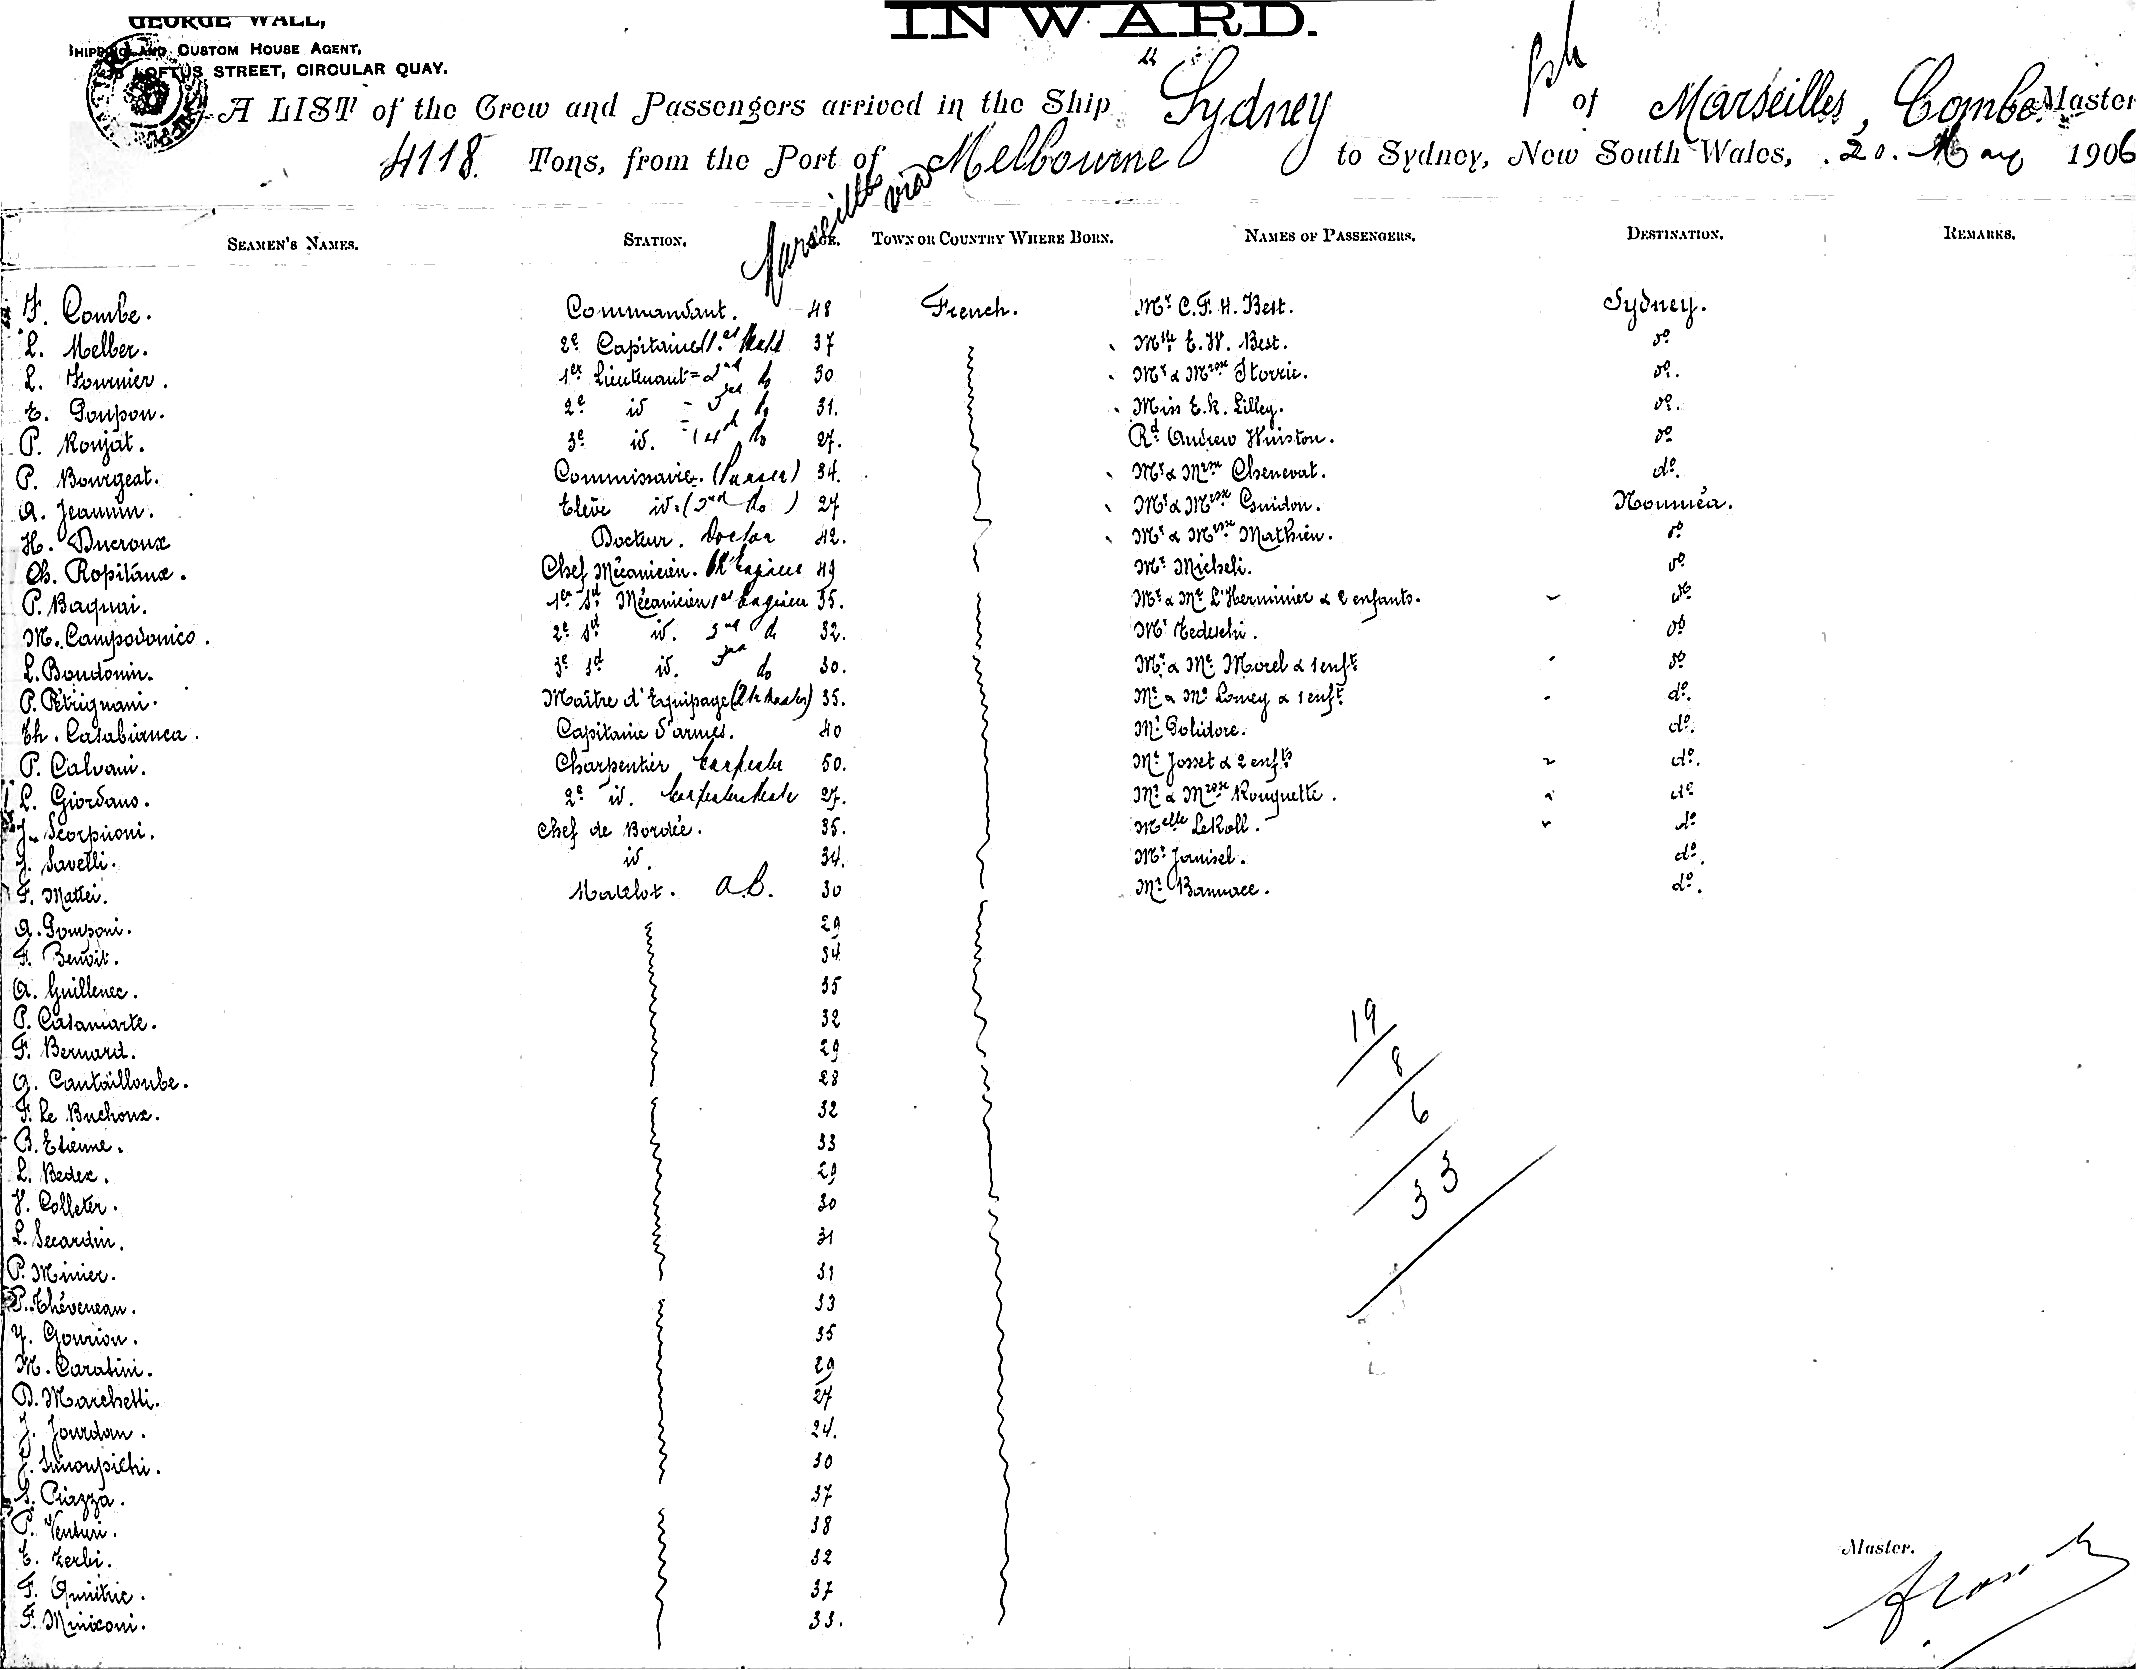 INWARD.
GEORGE WALL,
SHIPPING AND CUSTOM HOUSE AGENT,
LOFTUS STREET, CIRCULAR QUAY.
A LIST of the Crew and Passengers arrived in the Ship "Sydney of Marseilles, Combe. Master
4118. Tons, from the Port of Marseilles via Melbourne to Sydney, New South Wales, 20. May 1906
SEAMEN'S NAMES. STATION. AGE. TOWN OR COUNTRY WHERE BORN. NAMES OF PASSENGERS. DESTINATION. REMARKS.
F. Combe. Commandant. 48 French. Mr C. F. H. Best. Sydney.
L. Melber. 2e Capitaine 37 E. W. Best. do
L. Fournier. 1er Lieutenant = 2nd do 30 Mr & Storrie. do.
E. Poupon. 2e id = 3rd do 31. Miss E. K. Lilley. do.
P. Roujat. 3e id. = 4th do 27. Rd Andrew Huiston. do
P. Bourgeat. Commissaire. (Purser) 34. Mr & Chenevat. do.
A. Jeannin. Elève id. (2nd do) 27 Mr & Guidon. Nouméa.
H. Ducroux Docteur. Doctor 42. Mr & Mathieu. do
Ch. Ropitaux. Chef Mécanicien. Ch Engineer 49 Mr Micheli. do
P. Baquai. 1er Sd Mécanicien 1st Engineer 35. Mr & Me L'Herminier & 2 enfants. do
M. Campodonico. 2e Sd id. 2nd do 32. Mr Tedeschi. do
L. Boudouin. 3e Sd id. 3rd do 30. Mr & Me Morel & 1 enft do
P. Pétrignani. Maître d'Equipage 35. Mr & Me Lomey & 1 enft do.
Th. Casabianca. Capitaine d'armes. 40 Mr Polidore. do.
P. Calvani. Charpentier Carpenter 50. Josset & 2 enfts do.
L. Giordano. 2e id. Carpenters Mate 27. Mr & Rouquette. do
J. Scorpiioni. Chef de Bordée. 35. Melle LeKoll. do
J. Savelli. id. 34. Mr Janisel. do.
F. Mattei. Matelot. A.B. 30 Mr Bannace. do.
A. Pomponi. 29
F. Benoit. 34
A. Guillenec. 35
P. Casamarte. 32
F. Bernard. 29
A. Cantailloube. 28
F. Le Buchoux. 32
B. Etienne. 33
L. Bedex. 29
Y. Colleter. 30
L. Secardin. 31
P. Minier. 31
P. Théveneau. 33
Y. Gourion. 35
M. Caratini. 29
D. Marchetti. 27
J. Jourdan. 24.
Simonpichi. 30
S. Piazza. 37
P. Venturi. 38
E. Zerbi. 32
F. Quiètric. 37
F. Miniconi. 33.
19
8
6
33
Master.